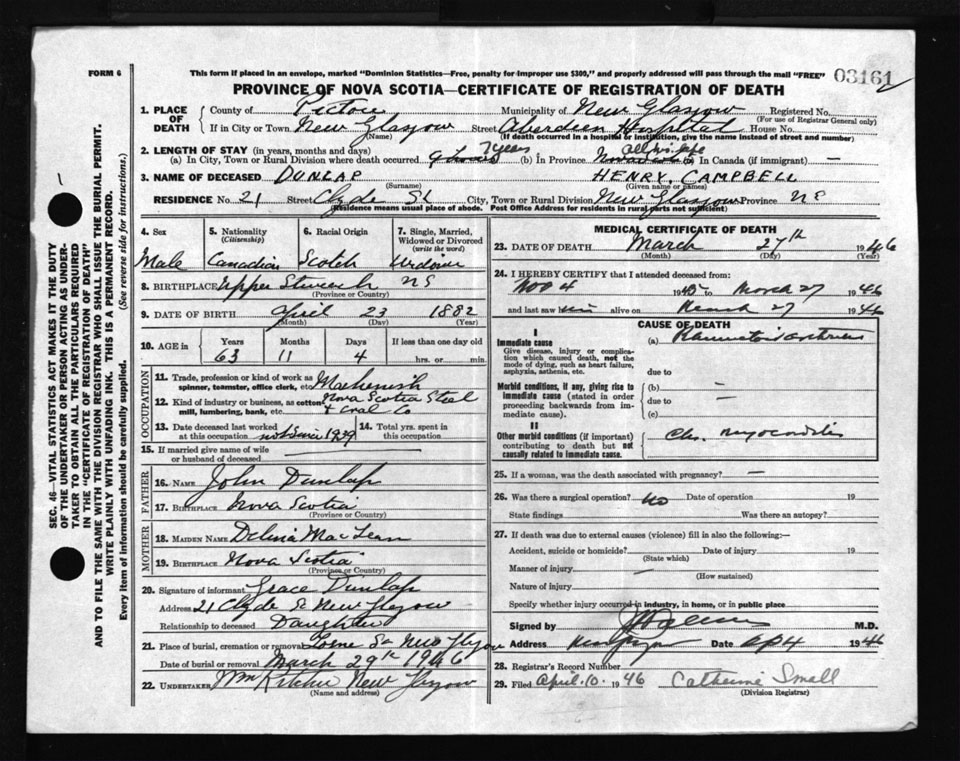 FORM 6
This form if placed in an envelope, marked "Dominion Statistics—Free, penalty for improper use $300," and properly addressed will pass through the mail "FREE"
03161
PROVINCE OF NOVA SCOTIA—CERTIFICATE OF REGISTRATION OF DEATH
1. PLACE OF DEATH
County of Pictou Municipality of New Glasgow Registered No.
(Name) (For use of Registrar General only)
If in City or Town New Glasgow Street Aberdeen Hospital House No.
(If death occurred in a hospital or institution, give the name instead of street and number)
2. LENGTH OF STAY (in years, months and days) 7 years all his life
(a) In City, Town or Rural Division where death occurred (b) In Province In Canada (if immigrant) —
3. NAME OF DECEASED DUNLAP HENRY, CAMPBELL
(Surname) (Given name or names)
RESIDENCE No. 21 Street Clyde St City, Town or Rural Division New Glasgow Province NS
(Residence means usual place of abode. Post Office Address for residents in rural parts not sufficient)
4. Sex Male
5. Nationality (Citizenship) Canadian
6. Racial Origin Scotch
7. Single, Married, Widowed or Divorced (write the word)
8. BIRTHPLACE Upper NS
(Province or Country)
9. DATE OF BIRTH April 23 1882
(Month) (Day) (Year)
10. AGE in Years Months Days If less than one day old
63 11 4 hrs. or min.
OCCUPATION
11. Trade, profession or kind of work as spinner, teamster, office clerk, etc.
12. Kind of industry or business, as cotton mill, lumbering, bank, etc. Nova Scotia Steel & Coal Co
13. Date deceased last worked at this occupation not since 1939
14. Total yrs. spent in this occupation
15. If married give name of wife or husband of deceased
FATHER
16. NAME John Dunlap
17. BIRTHPLACE Nova Scotia
(Province or Country)
MOTHER
18. MAIDEN NAME MacLean
19. BIRTHPLACE Nova Scotia
(Province or Country)
20. Signature of informant Grace Dunlap
Address 21 Clyde St New Glasgow
Relationship to deceased Daughter
21. Place of burial, cremation or removal Lorne St New Glasgow
Date of burial or removal March 29th 1946
22. UNDERTAKER New Glasgow
(Name and address)
MEDICAL CERTIFICATE OF DEATH
23. DATE OF DEATH March 27th 1946
(Month) (Day) (Year)
24. I HEREBY CERTIFY that I attended deceased from:
Nov 4 1945 to March 27 1946
and last saw him alive on March 27 1946
CAUSE OF DEATH
I
Immediate cause
Give disease, injury or complication which caused death, not the mode of dying, such as heart failure, asphyxia, asthenia, etc.
(a)
due to
Morbid conditions, if any, giving rise to immediate cause (stated in order proceeding backwards from immediate cause).
(b) —
due to —
(c)
II
Other morbid conditions (if important) contributing to death but not causally related to immediate cause.
Chr. myocarditis
25. If a woman, was the death associated with pregnancy? —
26. Was there a surgical operation? No Date of operation 19
State findings Was there an autopsy?
27. If death was due to external causes (violence) fill in also the following:—
Accident, suicide or homicide? Date of injury 19
(State which)
Manner of injury —
(How sustained)
Nature of injury
Specify whether injury occurred in industry, in home, or in public place
Signed by M.D.
Address Date Apr 4 1946
28. Registrar's Record Number
29. Filed April. 10. 1946 Catherine Small
(Division Registrar)
SEC. 46—VITAL STATISTICS ACT MAKES IT THE DUTY
OF THE UNDERTAKER OR PERSON ACTING AS UNDER-
TAKER TO OBTAIN ALL THE PARTICULARS REQUIRED
IN THE "CERTIFICATE OF REGISTRATION OF DEATH"
AND TO FILE THE SAME WITH THE DIVISION REGISTRAR WHO SHALL ISSUE THE BURIAL PERMIT.
WRITE PLAINLY WITH UNFADING INK. THIS IS A PERMANENT RECORD.
Every item of information should be carefully supplied. (See reverse side for instructions.)